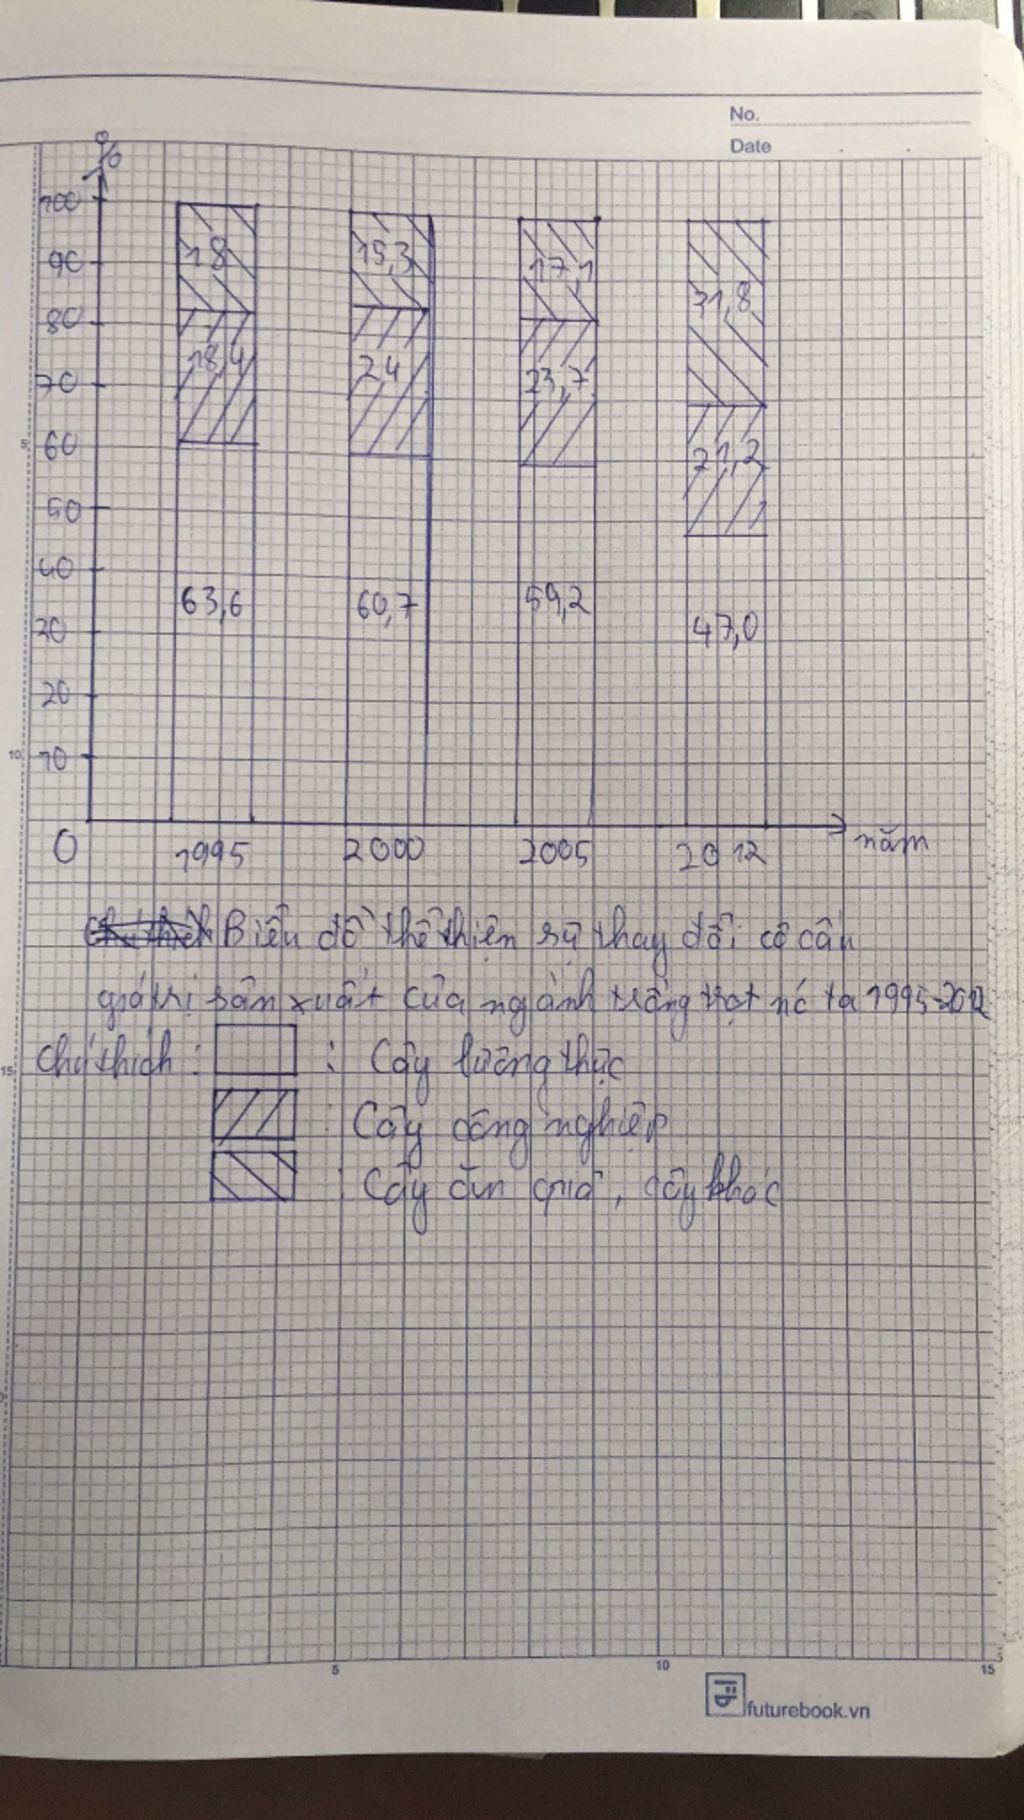 No.
Date
%
100
90
80
70
60
50
40
30
20
10
0
18 15,3 17,1 31,8
18,4 24 23,7 21,2
63,6 60,7 59,2 47,0
1995 2000 2005 2012 năm
Biểu đồ thể hiện sự thay đổi cơ cấu
giá trị sản xuất của ngành trồng trọt nc ta 1995-2012
Chú thích : : Cây lương thực
: Cây công nghiệp
: Cây ăn quả, cây khác
5
10
15
5 10 15
futurebook.vn